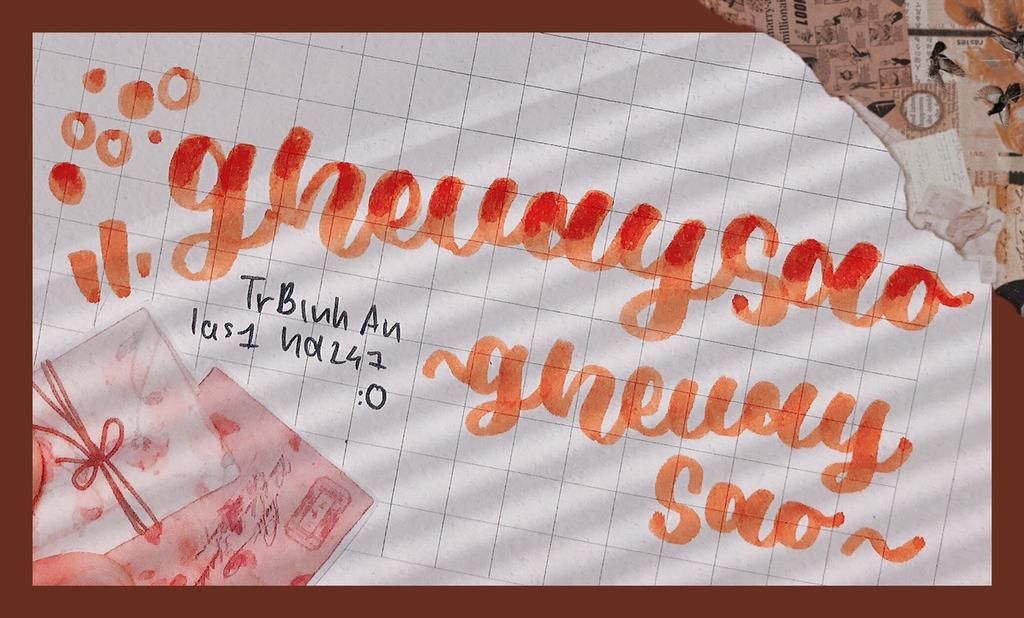 gheuaysao
TrBinh An
las1 hd247
:O
~gheuay
sao~